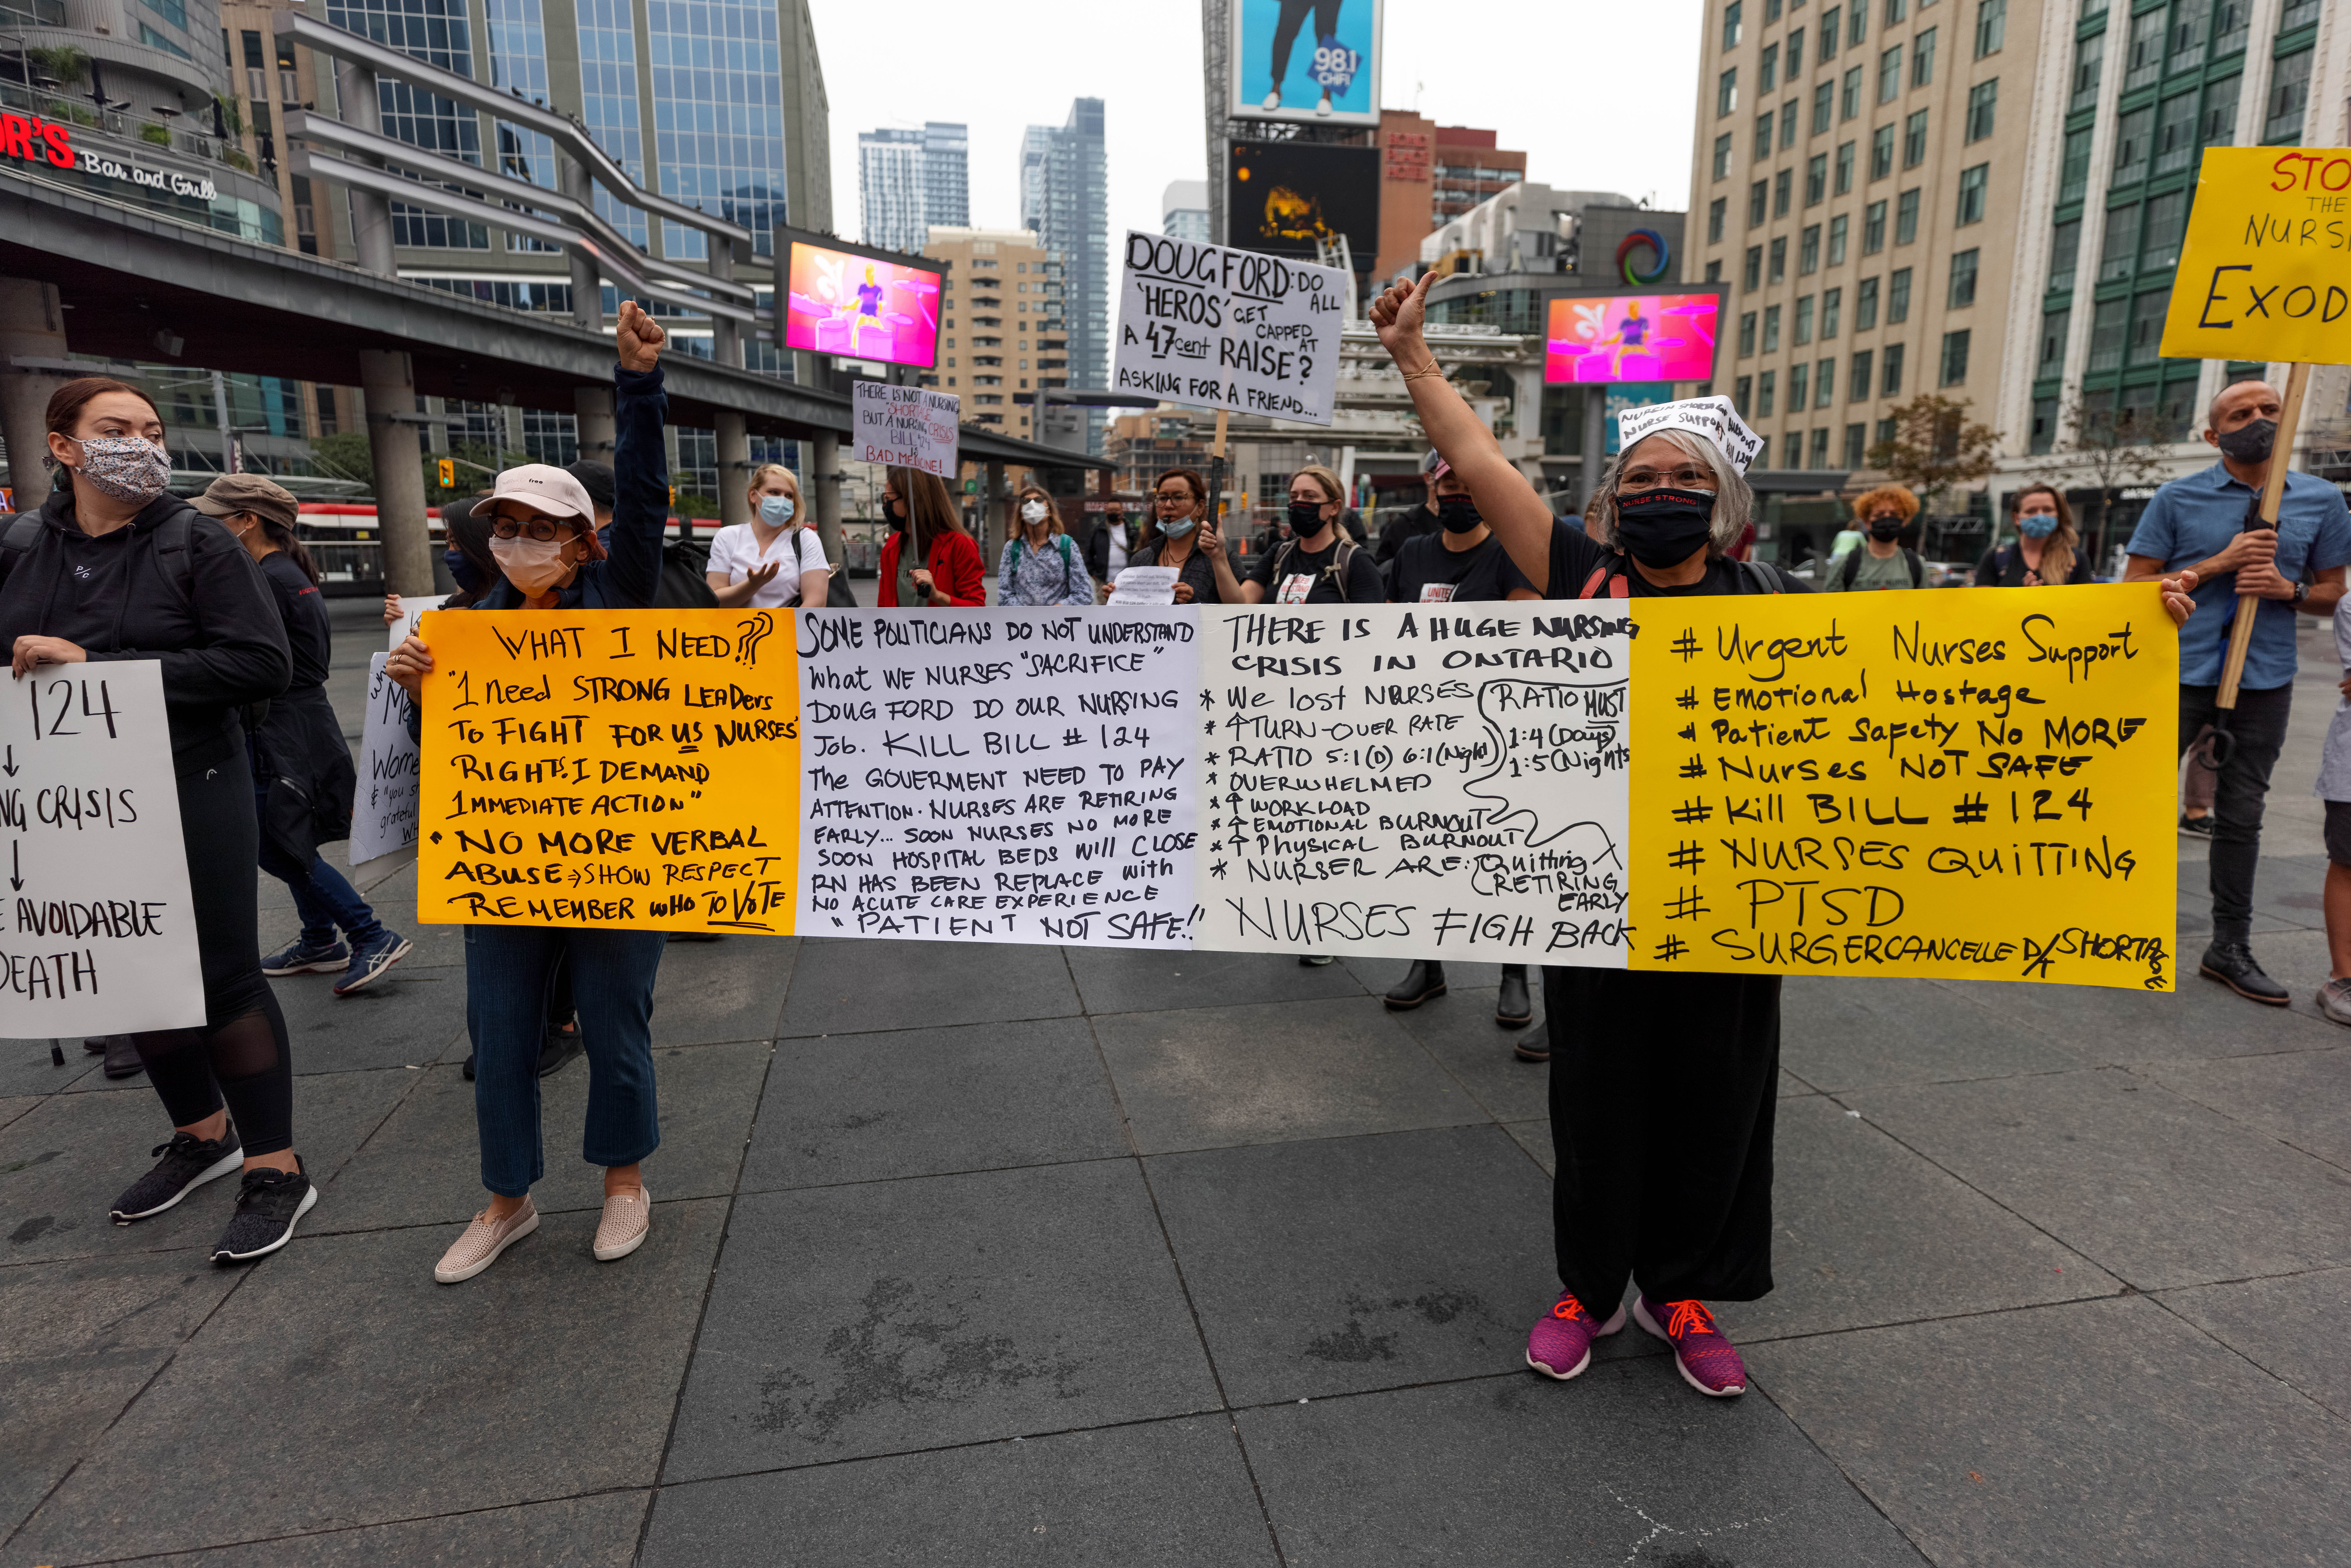 OR'S
Bar and Grill
98.1
CHFI
BOND
PLACE
HOTEL
DOUG FORD: DO
ALL
'HEROS' GET
CAPPED
AT
A 47cent RAISE?
ASKING FOR A FRIEND...
THERE IS NOT A NURSING
"SHORTAGE
BUT A NURSING CRISIS
BILL 124
IS
BAD MEDICINE!
STO
THE
NURSI
EXOD
free
NURSE SUPPORT
NURSE STRONG
UNITE
P/C
124
↓
NG CRISIS
↓
E AVOIDABLE
DEATH
Me
Wome
& "you s
grateful
WH
WHAT I NEED???
"I need STRONG LEADers
TO FIGHT FOR US NURSES'
RIGHTS. I DEMAND
IMMEDIATE ACTION"
• NO MORE VERBAL
ABUSE ⇒ SHOW RESPECT
REMEMBER WHO TO VOTE
SOME POLITICIANS DO NOT UNDERSTAND
What WE NURSES "SACRIFICE"
DOUG FORD DO OUR NURSING
Job. KILL BILL # 124
The GOVERMENT NEED TO PAY
ATTENTION. NURSES ARE RETIRING
EARLY... SOON NURSES NO MORE
SOON HOSPITAL BEDS WILL CLOSE
RN HAS BEEN REPLACE with
NO ACUTE CARE EXPERIENCE
"PATIENT NOT SAFE!!"
THERE IS A HUGE NURSING
CRISIS IN ONTARIO
* We lost NURSES
* ↑ TURN-OVER RATE
* RATIO 5:1(D) 6:1(Night)
* OVERWHELMED
* ↑ WORKLOAD
* ↑ EMOTIONAL BURNOUT
* ↑ PHYSICAL BURNOUT
* NURSER ARE: Quitting
RETIRING
EARLY
RATIO MUST
1:4 (Days)
1:5 (Nights
NURSES FIGH BACK
# Urgent Nurses Support
# Emotional Hostage
# Patient Safety No MORE
# Nurses NOT SAFE
# Kill BILL # 124
# NURSES QUITTING
# PTSD
# SURGERCANCELLED/SHORTAGE